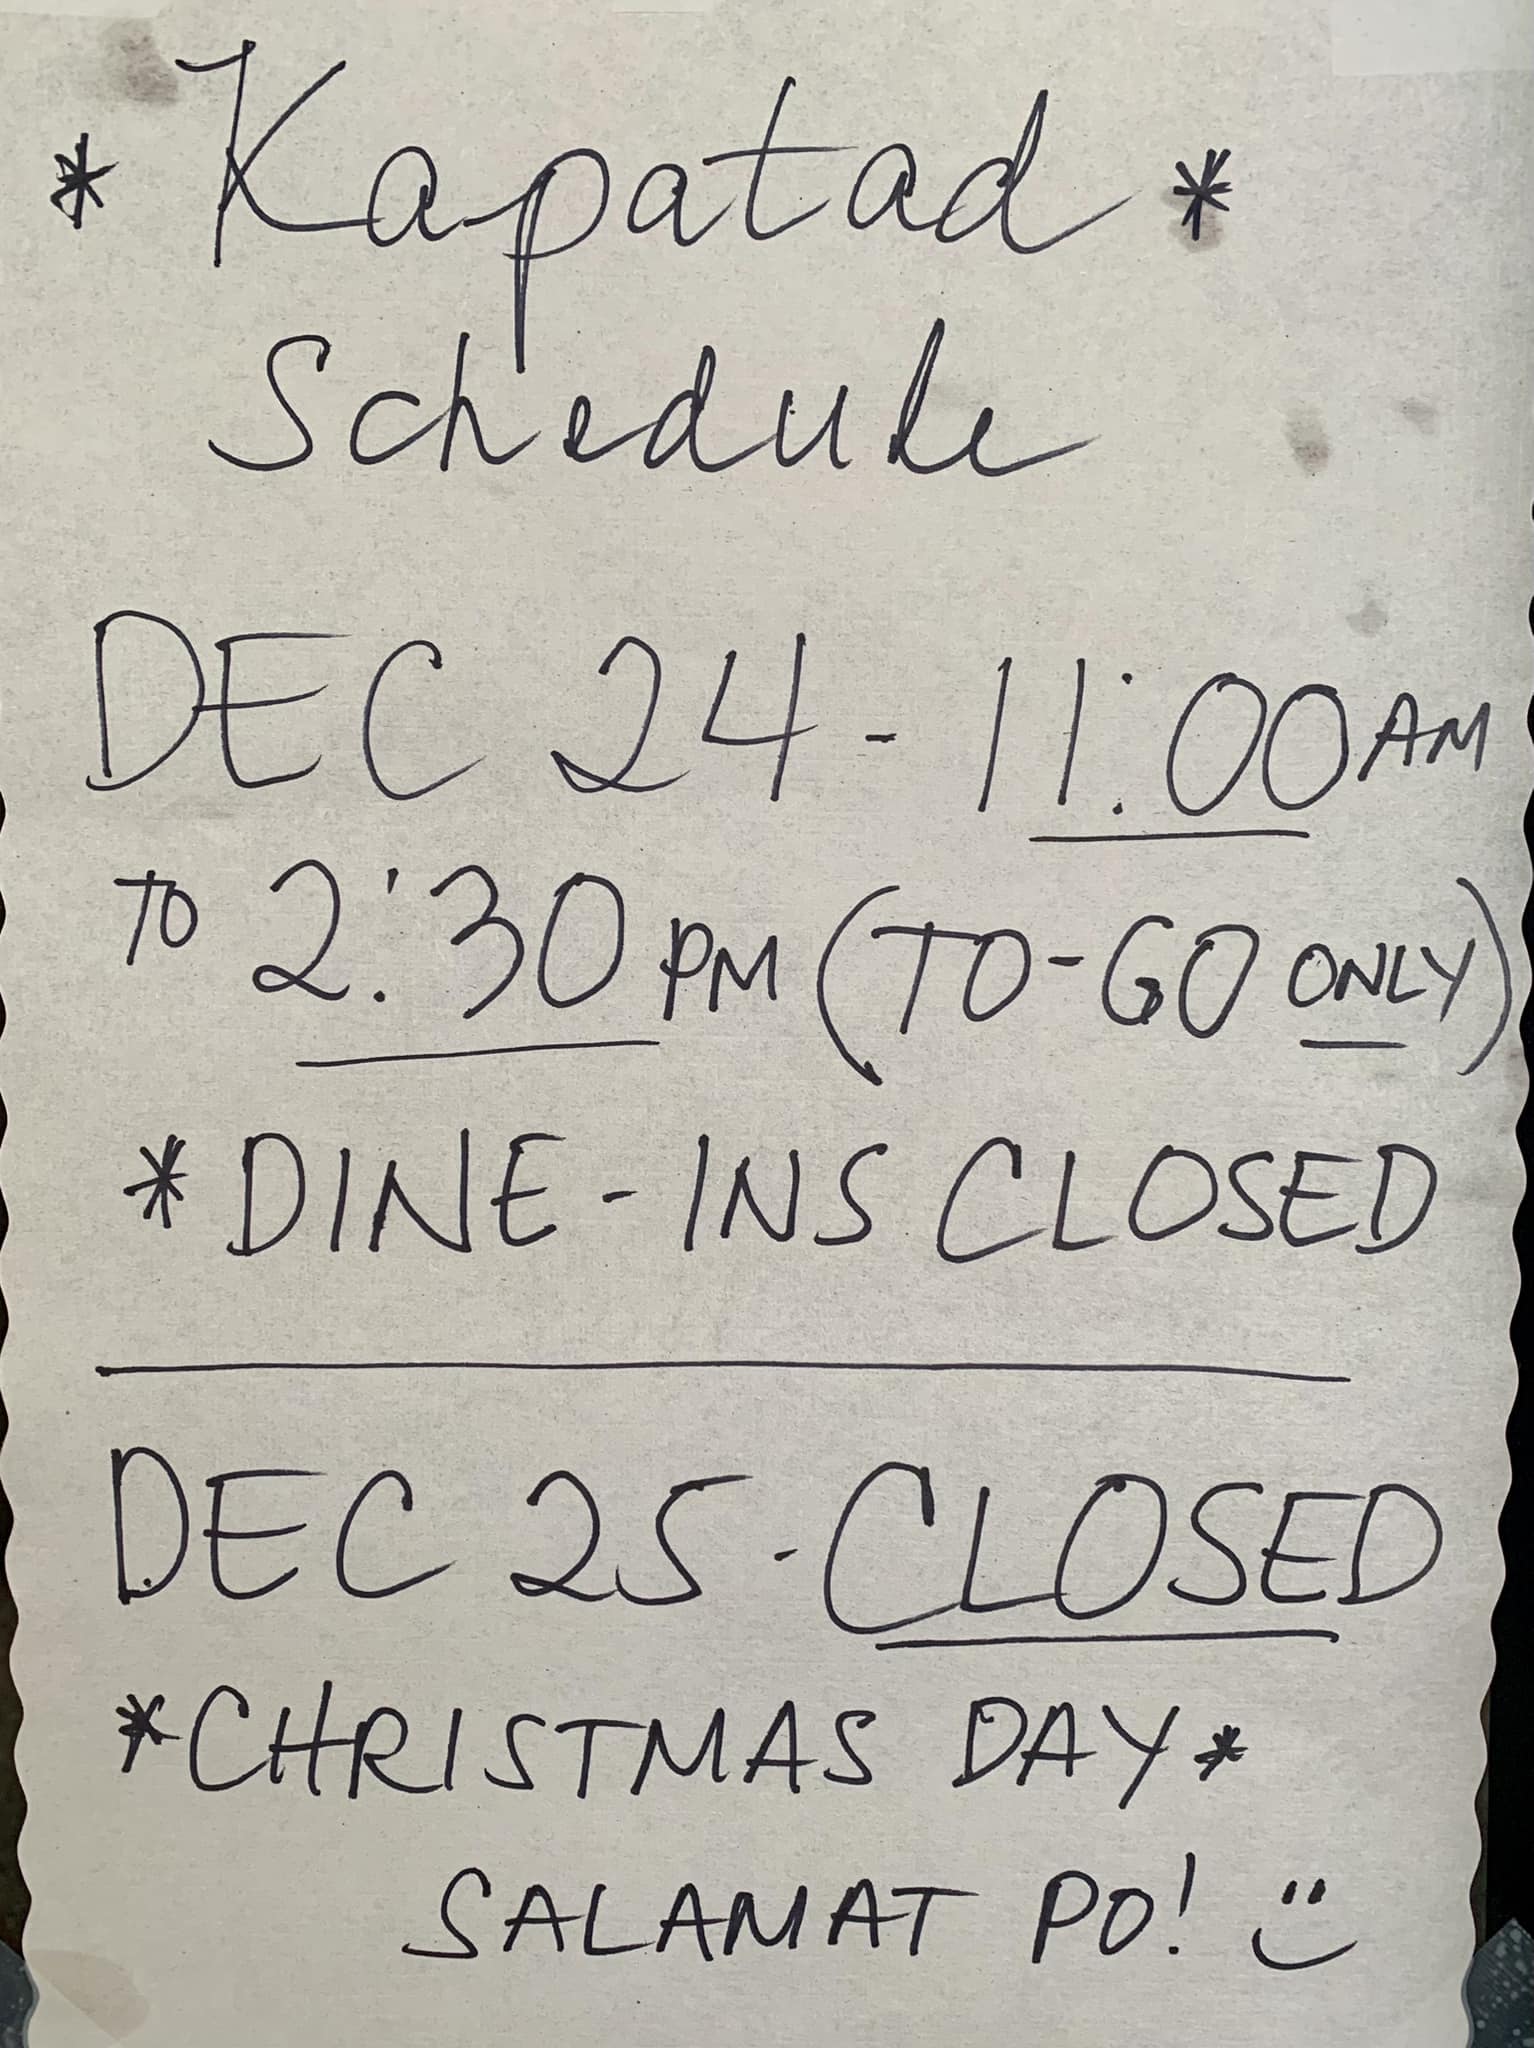 * Kapatad *
Schedule
DEC 24 - 11:00 AM
TO 2:30 PM (TO-GO ONLY)
* DINE-INS CLOSED
DEC 25 - CLOSED
*CHRISTMAS DAY*
SALAMAT PO!